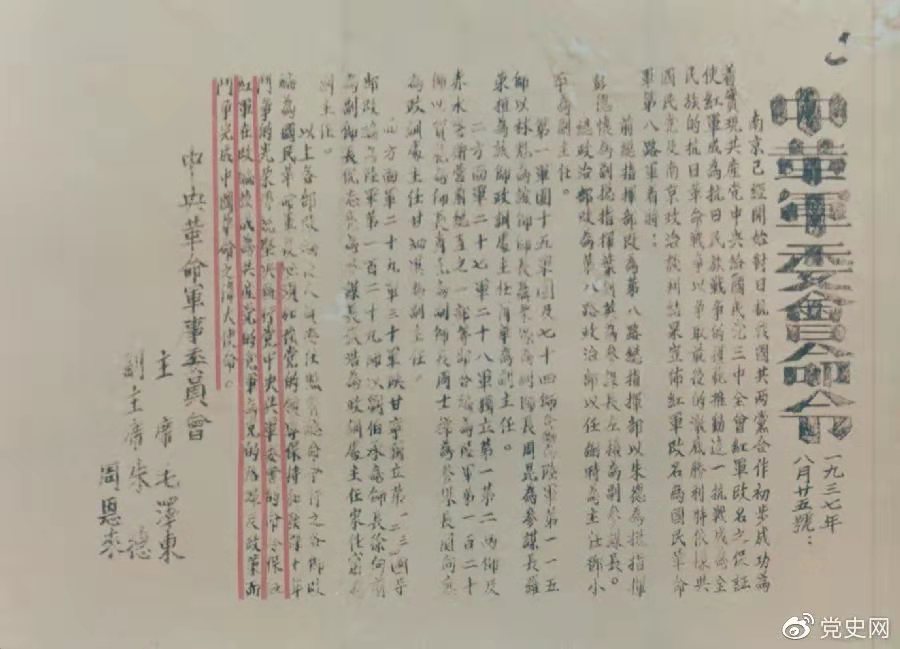 中革軍委會命令
一九三七年
八月廿五號：
南京已經開始對日抗戰國共兩黨合作初步成功為
着實現共產黨中央給國民黨三中全會紅軍改名之保証
使紅軍成為抗日民族戰爭的模範推動這一抗戰成為全
民族的抗日革命戰爭以爭取最後的澈底勝利特依據與
國民黨及南京政治談判結果宣佈紅軍改名為國民革命
軍第八路軍着將：
前總指揮部改為第八路總指揮部以朱德為總指揮
彭德懷為副總指揮葉劍英為參謀長左權為副參謀長。
總政治部改為第八路政治部以任弼時為主任鄧小
平為副主任。
第一軍團十五軍團及七十四師合編為陸軍第一一五
師以林彪為該師師長聶榮臻為副師長周昆為參謀長羅
榮桓為該師政訓處主任蕭華為副主任。
二方面軍二十七軍二十八軍獨立第一第二兩師及
赤水警衛營前總直之一部等部合編為陸軍第一百二十
師以賀龍為師長蕭克為副師長周士第為參謀長關向應
為政訓處主任甘泗淇為副主任。
四方面軍二十九軍三十軍陝甘寧獨立第一二三四等
部改編為陸軍第一百二十九師以劉伯承為師長徐向前
為副師長倪志亮為參謀長張浩為政訓處主任宋任窮為
副主任。
以上各部改編後人員委任照前總命令行之各部改
編為國民革命軍後必須加強黨的領導保持和發揚十年
鬥爭的光榮傳統堅決執行黨中央與軍委會的命令保證
紅軍在改編後成為共產黨的黨軍為黨的路線及政策而
鬥爭完成中國革命之偉大使命。
中央革命軍事委員會
主席毛澤東
副主席朱德
周恩來
党史网